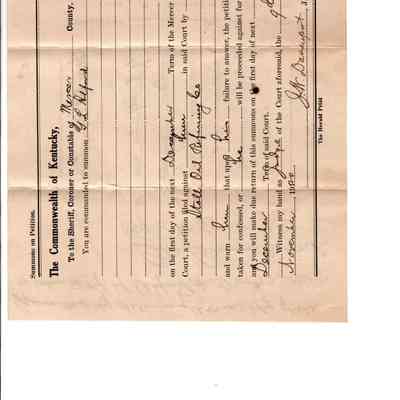 Summons on Petition.
The Commonwealth of Kentucky,
To the Sheriff, Coroner or Constable of Mercer County.
You are commanded to summon
on the first day of the next December Term of the Mercer
Court, a petition filed against him in said Court by
Stoll Oil Refining Co
and warn him that upon his failure to answer, the petiti
taken for confessed, or he will be proceeded against for
and you will make due return of this summons on the first day of next
December Term of said Court.
Witness my hand as Judge of the Court aforesaid, the 9
November 19
The Herald Print